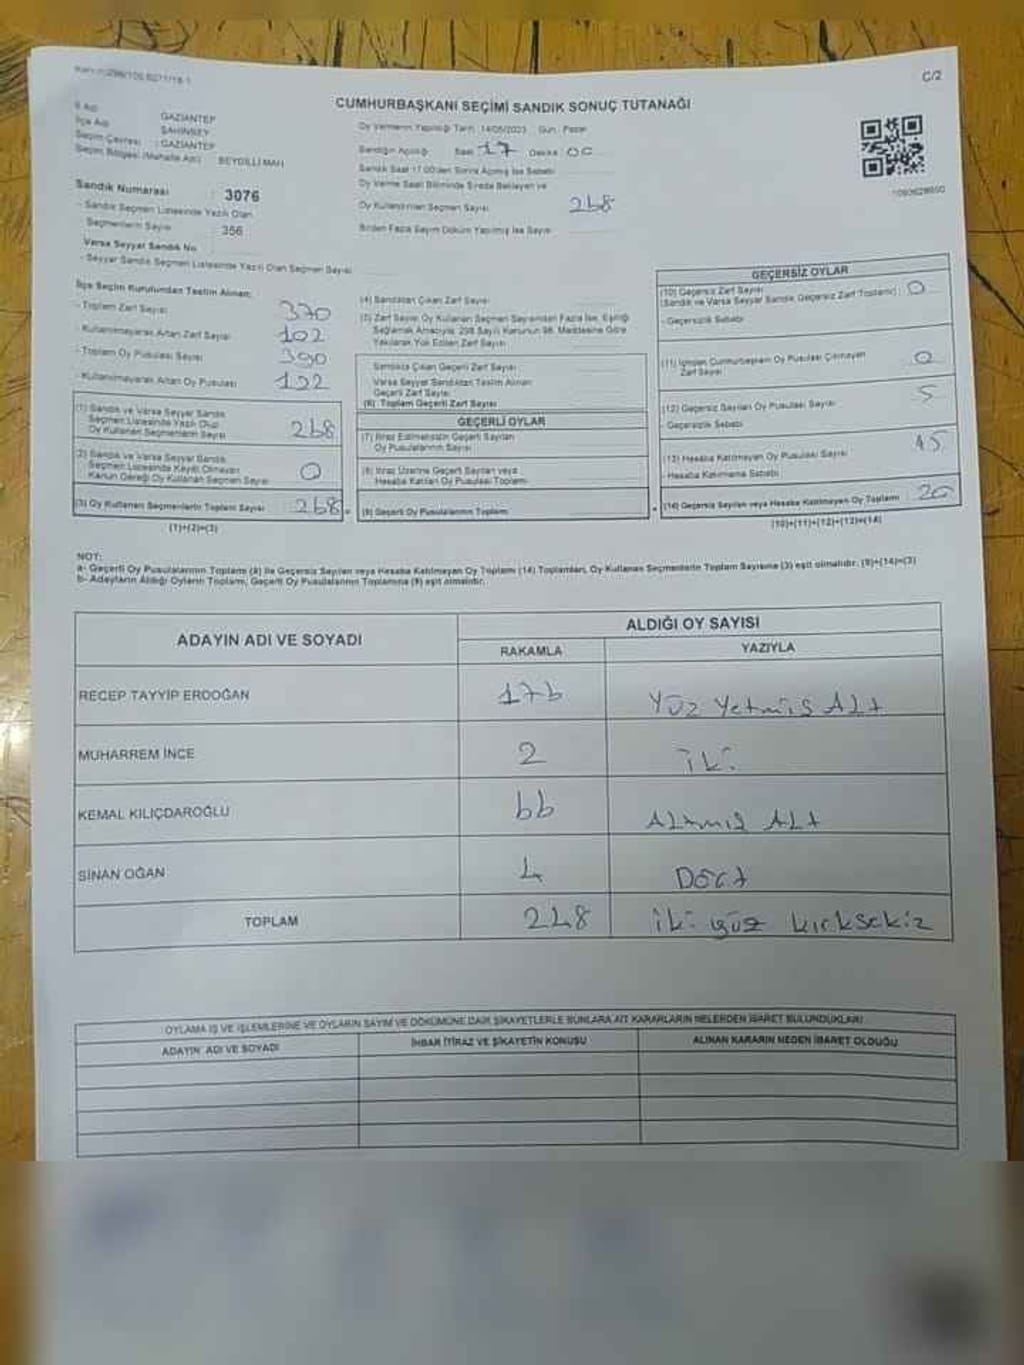 C/2
CUMHURBAŞKANI SEÇİMİ SANDIK SONUÇ TUTANAĞI
İl Adı GAZİANTEP
İlçe Adı ŞAHİNBEY
Seçim Çevresi : GAZİANTEP
Seçim Bölgesi (Mahalle Adı) BEYDİLLİ MAH
Sandık Numarası : 3076
- Sandık Seçmen Listesinde Yazılı Olan
Seçmenlerin Sayısı : 356
Varsa Seyyar Sandık No
- Seyyar Sandık Seçmen Listesinde Yazılı Olan Seçmen Sayısı
Oy Vermenin Yapıldığı Tarih: 14/05/2023 Gün: Pazar
Sandığın Açıldığı Saat 17 Dakika 00
Sandık Saat 17.00'den Sonra Açılmış İse Sebebi
Oy Verme Saati Bitiminde Sırada Bekleyen ve
Oy Kullandırılan Seçmen Sayısı 268
Birden Fazla Sayım Döküm Yapılmış İse Sayısı
1090628600
İlçe Seçim Kurulundan Teslim Alınan;
- Toplam Zarf Sayısı 370
- Kullanılmayarak Artan Zarf Sayısı 102
- Toplam Oy Pusulası Sayısı 390
- Kullanılmayarak Artan Oy Pusulası 122
(1) Sandık ve Varsa Seyyar Sandık
Seçmen Listesinde Yazılı Olup
Oy Kullanan Seçmenlerin Sayısı 268
(2) Sandık ve Varsa Seyyar Sandık
Seçmen Listesinde Kayıtlı Olmayan
Kanun Gereği Oy Kullanan Seçmen Sayısı 0
(3) Oy Kullanan Seçmenlerin Toplam Sayısı 268
(1)+(2)=(3)
(4) Sandıktan Çıkan Zarf Sayısı
(5) Zarf Sayısı Oy Kullanan Seçmen Sayısından Fazla İse, Eşitliği
Sağlamak Amacıyla, 298 Sayılı Kanunun 98. Maddesine Göre
Yakılarak Yok Edilen Zarf Sayısı
Sandıkta Çıkan Geçerli Zarf Sayısı
Varsa Seyyar Sandıktan Teslim Alınan
Geçerli Zarf Sayısı
(6) Toplam Geçerli Zarf Sayısı
GEÇERLİ OYLAR
(7) İtiraz Edilmeksizin Geçerli Sayılan
Oy Pusulalarının Sayısı
(8) İtiraz Üzerine Geçerli Sayılan veya
Hesaba Katılan Oy Pusulası Toplamı
(9) Geçerli Oy Pusulalarının Toplamı
GEÇERSİZ OYLAR
(10) Geçersiz Zarf Sayısı
(Sandık ve Varsa Seyyar Sandık Geçersiz Zarf Toplamı) : 0
- Geçersizlik Sebebi
(11) İçinden Cumhurbaşkanı Oy Pusulası Çıkmayan
Zarf Sayısı 0
(12) Geçersiz Sayılan Oy Pusulası Sayısı 5
- Geçersizlik Sebebi
(13) Hesaba Katılmayan Oy Pusulası Sayısı 15
- Hesaba Katılmama Sebebi
(14) Geçersiz Sayılan veya Hesaba Katılmayan Oy Toplamı 20
(10)+(11)+(12)+(13)=(14)
NOT:
a- Geçerli Oy Pusulalarının Toplamı (9) ile Geçersiz Sayılan veya Hesaba Katılmayan Oy Toplamı (14) Toplamları, Oy Kullanan Seçmenlerin Toplam Sayısına (3) eşit olmalıdır. (9)+(14)=(3)
b- Adayların Aldığı Oyların Toplamı, Geçerli Oy Pusulalarının Toplamına (9) eşit olmalıdır.
ADAYIN ADI VE SOYADI ALDIĞI OY SAYISI
RAKAMLA YAZIYLA
RECEP TAYYİP ERDOĞAN 176 Yüz Yetmiş Altı
MUHARREM İNCE 2 iki
KEMAL KILIÇDAROĞLU 66 Altmış Altı
SİNAN OĞAN 4 Dört
TOPLAM 248 iki yüz kırksekiz
OYLAMA İŞ VE İŞLEMLERİNE VE OYLARIN SAYIM VE DÖKÜMÜNE DAİR ŞİKAYETLERLE BUNLARA AİT KARARLARIN NELERDEN İBARET BULUNDUKLARI
ADAYIN ADI VE SOYADI İHBAR İTİRAZ VE ŞİKAYETİN KONUSU ALINAN KARARIN NEDEN İBARET OLDUĞU